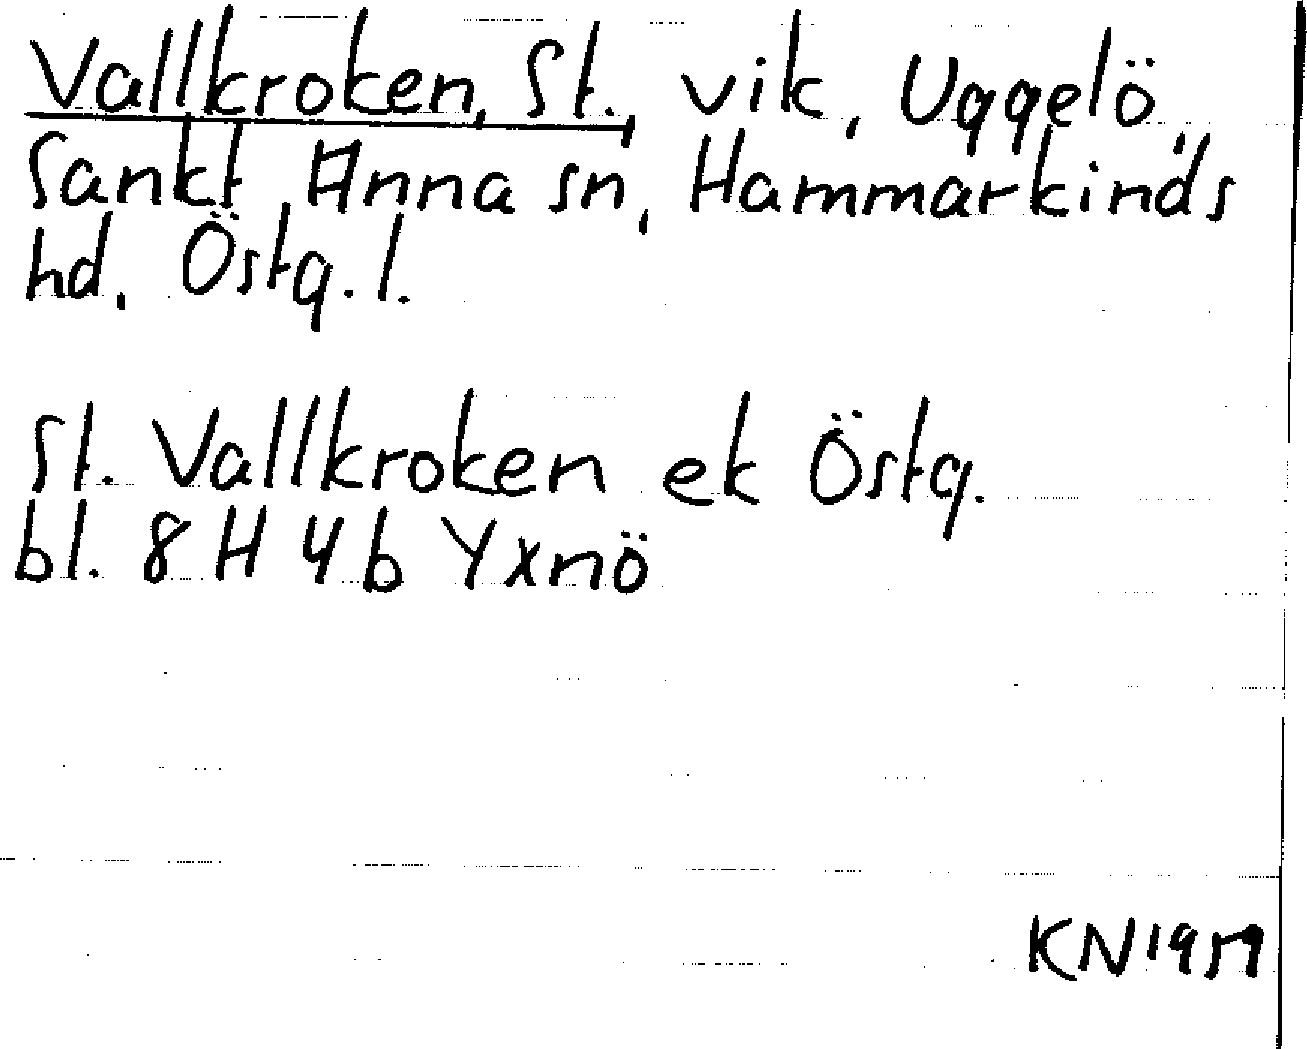 Vallkroken, St. vik, Uggelö,
Sankt Anna sn, Hammarkinds
hd, Östg. l.
St. Vallkroken ek Östg.
bl. 8 H 4 b Yxnö